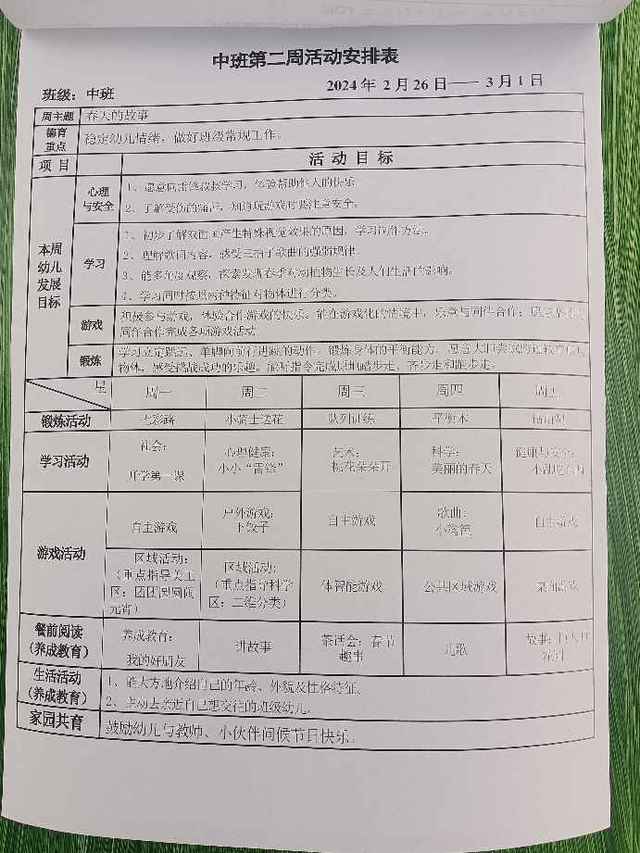 中班第二周活动安排表
班级：中班
2024 年 2 月 26 日—— 3 月 1 日
周主题 春天的故事
德育重点 稳定幼儿情绪，做好班级常规工作。
项 目 活 动 目 标
本周幼儿发展目标
心理与安全
1、愿意向雷锋叔叔学习，体验帮助他人的快乐
2、了解受伤的痛苦，知道玩游戏时要注意安全。
学习
1、初步了解 产生特殊视觉效果的原因，学习制作
2、理解歌词内容，感受三拍子歌曲的强弱规律。
3、能多角度观察，探索发现春季对动植物生长及人们生活的影响。
4、学习同时按照两种特征对物体进行分类。
游戏
积极参与游戏，体验合作游戏的快乐。能在游戏化的情境中，乐意与同伴合作；
同伴合作完成各项游戏活动
锻炼
学习立定跳远、单脚向前行进跳的动作，锻炼身体的平衡能力，愿意大胆尝试
物体，感受挑战成功的乐趣。 指令完成原地踏步走、齐步走和跑步走。
星
周一 周二 周三 周四 周五
锻炼活动 七彩路 小骑士送花 队列训练 平衡木
学习活动
社会：
开学第一课
心理健康：
小小“雷锋”
艺术：
桃花朵朵开
科学：
美丽的春天
健康与安全：
游戏活动
自主游戏
户外游戏：
下饺子
自主游戏
歌曲：
小篱笆
自主游戏
区域活动：
（重点指导美工区：团团圆圆闹元宵）
区域活动：
（重点指导科学区：二维分类）
体智能游戏
公共区域游戏
桌面游戏
餐前阅读
（养成教育）
养成教育：
我的好朋友
讲故事
茶话会：春节趣事
儿歌
故事：
生活活动
（养成教育）
1、能大方地介绍自己的年龄、外貌及性格特征。
2、主动去亲近自己想交往的班级幼儿。
家园共育 鼓励幼儿与教师、小伙伴问候节日快乐。